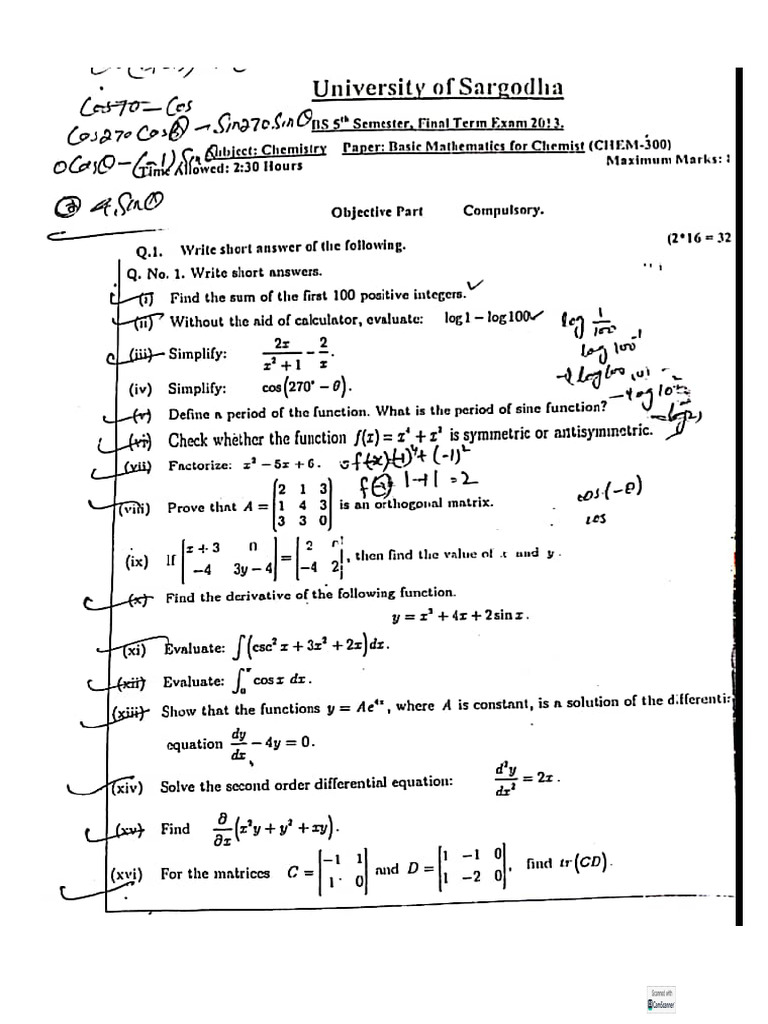 University of Sargodha
Cos270 Cosθ — Sin270 Sinθ
BS 5th Semester, Final Term Exam 2013.
Subject: Chemistry Paper: Basic Mathematics for Chemist (CHEM-300)
Time Allowed: 2:30 Hours Maximum Marks:
Objective Part Compulsory.
Q.1. Write short answer of the following. (2*16 = 32
Q. No. 1. Write short answers.
(i) Find the sum of the first 100 positive integers.
(ii) Without the aid of calculator, evaluate: log1 – log100
log 1/100
log 100⁻¹
(iii) Simplify: 2x/(x²+1) – 2/x.
(iv) Simplify: cos(270° – θ).
(v) Define a period of the function. What is the period of sine function?
(vi) Check whether the function f(x) = x⁴ + x² is symmetric or antisymmetric.
(vii) Factorize: x² – 5x + 6.
(viii) Prove that A = [2 1 3; 1 4 3; 3 3 0] is an orthogonal matrix.
cos(-θ)
cos
(ix) If [x + 3 0; –4 3y – 4] = [2 0; –4 2], then find the value of x and y.
(x) Find the derivative of the following function.
y = x³ + 4x + 2sin x.
(xi) Evaluate: ∫(csc² x + 3x² + 2x)dx.
(xii) Evaluate: ∫₀^π cos x dx.
(xiii) Show that the functions y = Ae⁴ˣ, where A is constant, is a solution of the differenti
equation dy/dx – 4y = 0.
(xiv) Solve the second order differential equation: d²y/dx² = 2x.
(xv) Find ∂/∂x (x²y + y² + xy).
(xvi) For the matrices C = [–1 1; 1 0] and D = [1 –1 0; 1 –2 0], find tr(CD).
Scanned with
CamScanner